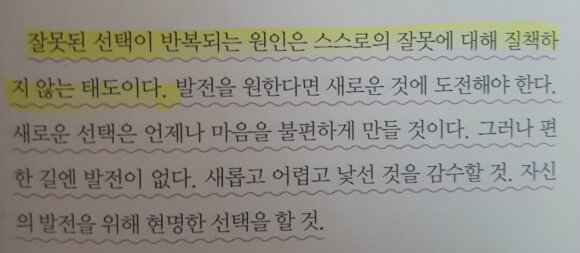 잘못된 선택이 반복되는 원인은 스스로의 잘못에 대해 질책하
지 않는 태도이다. 발전을 원한다면 새로운 것에 도전해야 한다.
새로운 선택은 언제나 마음을 불편하게 만들 것이다. 그러나 편
한 길엔 발전이 없다. 새롭고 어렵고 낯선 것을 감수할 것. 자신
의 발전을 위해 현명한 선택을 할 것.